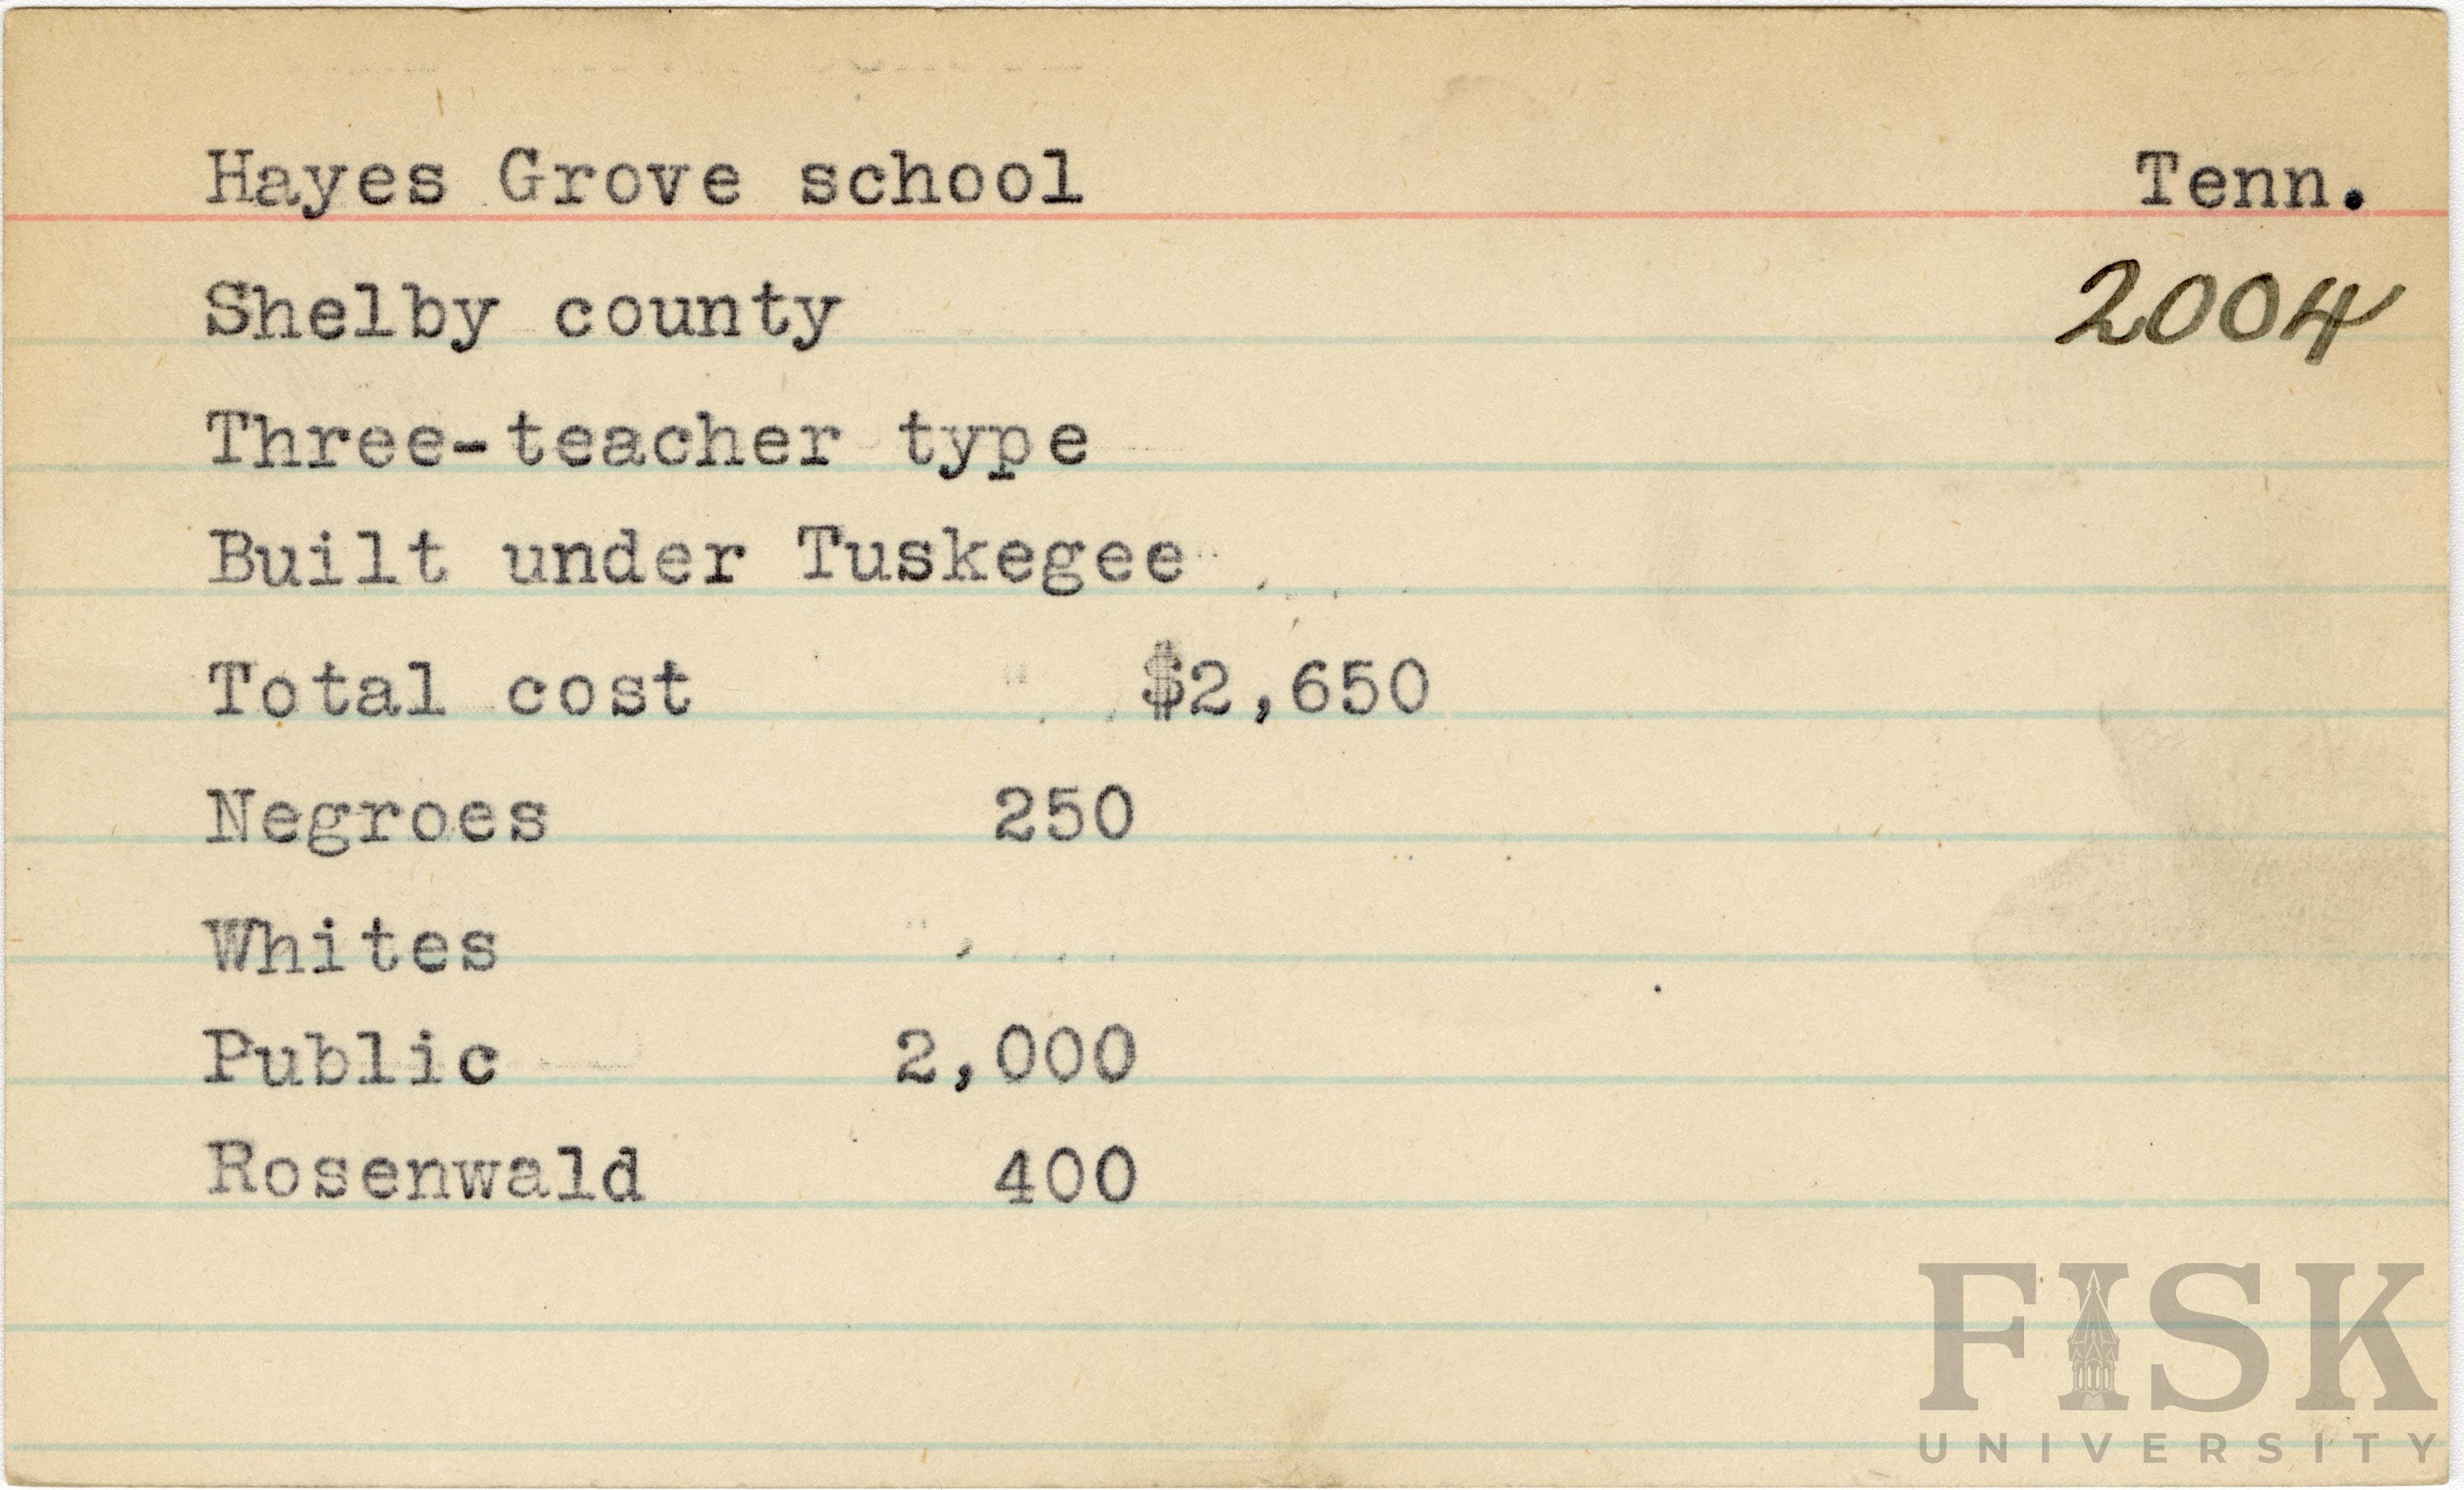 Hayes Grove school Tenn.
Shelby county 2004
Three-teacher type
Built under Tuskegee
Total cost $2,650
Negroes 250
Whites
Public 2,000
Rosenwald 400
FISK
UNIVERSITY